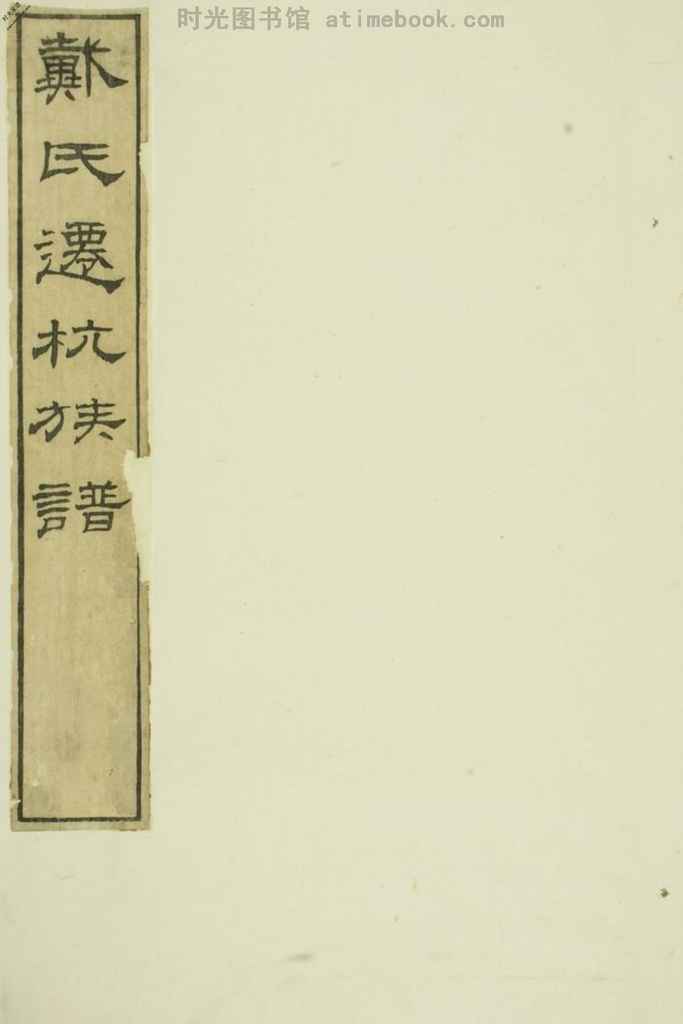 时光图书馆 atimebook.com
戴氏遷杭族譜